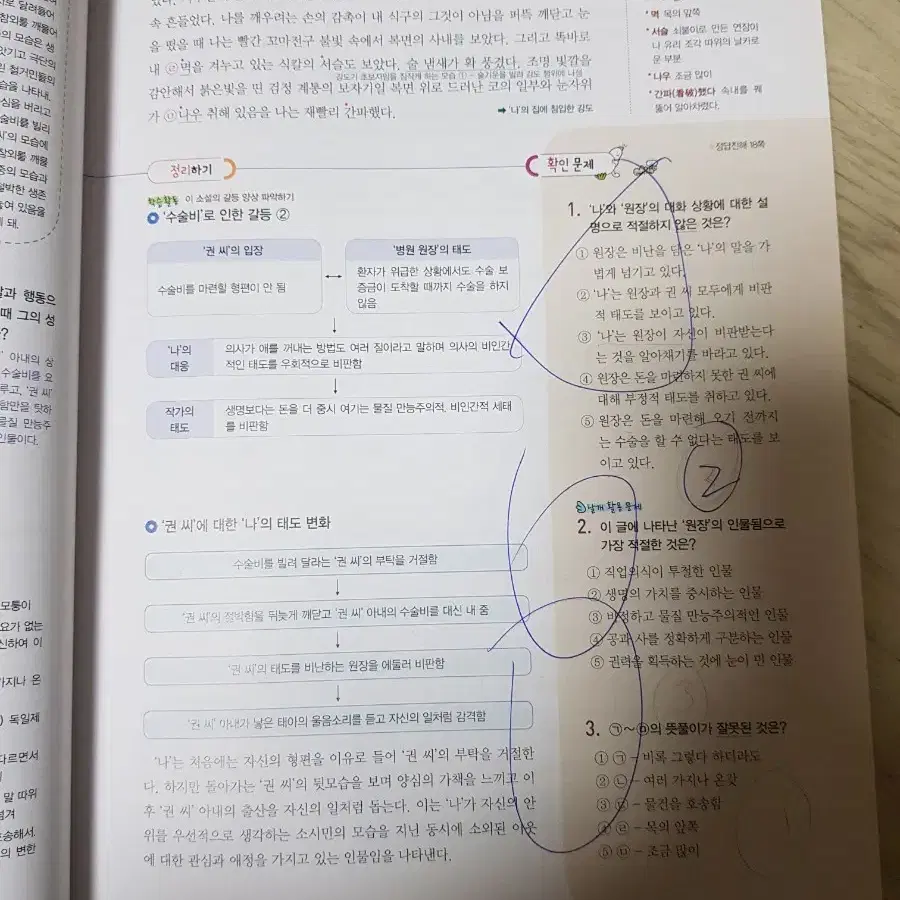 속 흔들었다. 나를 깨우려는 손의 감촉이 내 식구의 그것이 아님을 퍼뜩 깨닫고 눈
을 떴을 때 나는 빨간 꼬마전구 불빛 속에서 복면의 사내를 보았다. 그리고 똑바로
내 ㉣멱을 겨누고 있는 식칼의 서슬도 보았다. 술 냄새가 확 풍겼다. 조명 빛깔을
감안해서 붉은빛을 띤 검정 계통의 보자기일 복면 위로 드러난 코의 일부와 눈자위
가 ㉤나우 취해 있음을 나는 재빨리 간파했다.
➡ '나'의 집에 침입한 강도
* 멱 목의 앞쪽
* 서슬 쇠붙이로 만든 연장이
나 유리 조각 따위의 날카로
운 부분
* 나우 조금 많이
* 간파(看破)했다 속내를 꿰
뚫어 알아차렸다.
정리하기
학습활동 이 소설의 갈등 양상 파악하기
'수술비'로 인한 갈등 ②
'권 씨'의 입장
수술비를 마련할 형편이 안 됨
'병원 원장'의 태도
환자가 위급한 상황에서도 수술 보
증금이 도착할 때까지 수술을 하지
않음
'나'의
대응
의사가 애를 꺼내는 방법도 여러 질이라고 말하며 의사의 비인간
적인 태도를 우회적으로 비판함
작가의
태도
생명보다는 돈을 더 중시 여기는 물질 만능주의적, 비인간적 세태
를 비판함
'권 씨'에 대한 '나'의 태도 변화
수술비를 빌려 달라는 '권 씨'의 부탁을 거절함
'권 씨'의 절박함을 뒤늦게 깨닫고 '권 씨' 아내의 수술비를 대신 내 줌
'권 씨'의 태도를 비난하는 원장을 에둘러 비판함
'권 씨' 아내가 낳은 태아의 울음소리를 듣고 자신의 일처럼 감격함
'나'는 처음에는 자신의 형편을 이유로 들어 '권 씨'의 부탁을 거절한
다. 하지만 돌아가는 '권 씨'의 뒷모습을 보며 양심의 가책을 느끼고 이
후 '권 씨' 아내의 출산을 자신의 일처럼 돕는다. 이는 '나'가 자신의 안
위를 우선적으로 생각하는 소시민의 모습을 지닌 동시에 소외된 이웃
에 대한 관심과 애정을 가지고 있는 인물임을 나타낸다.
확인 문제
정답친해 18쪽
1. '나'와 '원장'의 대화 상황에 대한 설
명으로 적절하지 않은 것은?
① 원장은 비난을 담은 '나'의 말을 가
볍게 넘기고 있다.
② '나'는 원장과 권 씨 모두에게 비판
적 태도를 보이고 있다.
③ '나'는 원장이 자신이 비판받는다
는 것을 알아채기를 바라고 있다.
④ 원장은 돈을 마련하지 못한 권 씨에
대해 부정적 태도를 취하고 있다.
⑤ 원장은 돈을 마련해 오기 전까지
는 수술을 할 수 없다는 태도를 보
이고 있다.
2
날개 활동 문제
2. 이 글에 나타난 '원장'의 인물됨으로
가장 적절한 것은?
① 직업의식이 투철한 인물
② 생명의 가치를 중시하는 인물
③ 비정하고 물질 만능주의적인 인물
④ 공과 사를 정확하게 구분하는 인물
⑤ 권력을 획득하는 것에 눈이 먼 인물
3
3. ㉠~㉤의 뜻풀이가 잘못된 것은?
① ㉠ - 비록 그렇다 하더라도
② ㉡ - 여러 가지나 온갖
③ ㉢ - 물건을 호송함
④ ㉣ - 목의 앞쪽
⑤ ㉤ - 조금 많이
1